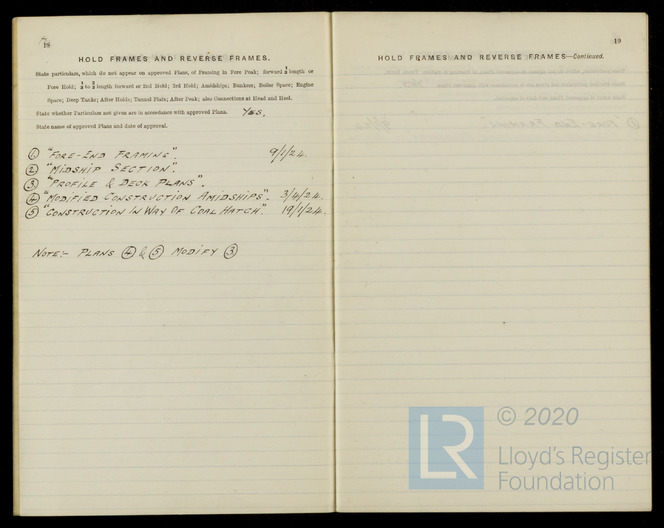 18
HOLD FRAMES AND REVERSE FRAMES.
State particulars, which do not appear on approved Plans, of Framing in Fore Peak; forward length or
Fore Hold; length forward or 2nd Hold; 3rd Hold; Amidships; Bunkers; Boiler Space; Engine
Space; Deep Tanks; After Holds; Tunnel Flats; After Peak; also Connections at Head and Heel.
State whether Particulars not given are in accordance with approved Plans. YES,
State name of approved Plans and date of approval.
① "FORE-END FRAMING". 9/1/24.
② "MIDSHIP SECTION".
③ "PROFILE & DECK PLANS".
④ "MODIFIED CONSTRUCTION AMIDSHIPS". 3/4/24.
⑤ "CONSTRUCTION IN WAY OF COAL HATCH". 19/1/24.
NOTE:- PLANS ④ & ⑤ MODIFY ③
19
HOLD FRAMES AND REVERSE FRAMES—Continued.
LR
© 2020
Lloyd's Register
Foundation